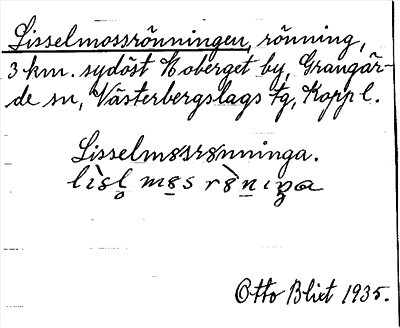 Lisselmossrönningen, rönning,
3 km. sydöst Noberget by, Grangär-
de sn, Västerbergslags tg, Kopp l.
Lisselmøsrønninga.
Otto Blixt 1935.